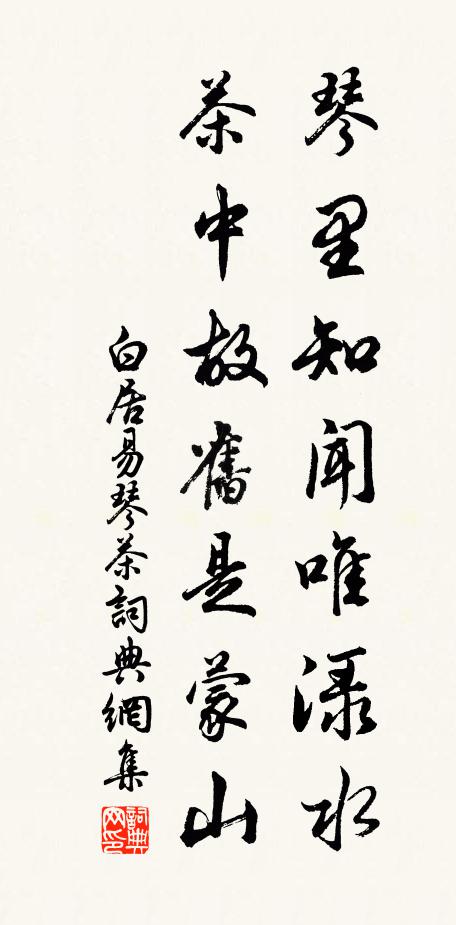 琴里知聞唯渌水
茶中故舊是蒙山
白居易琴茶詞典網集
詞典
网印